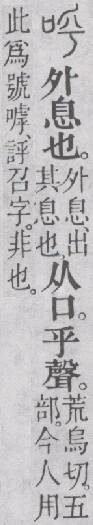 呼外息也。外息、出其息也。从口。乎聲。荒烏切。五部。今人用
此爲號嘑、𧦝召字。非也。